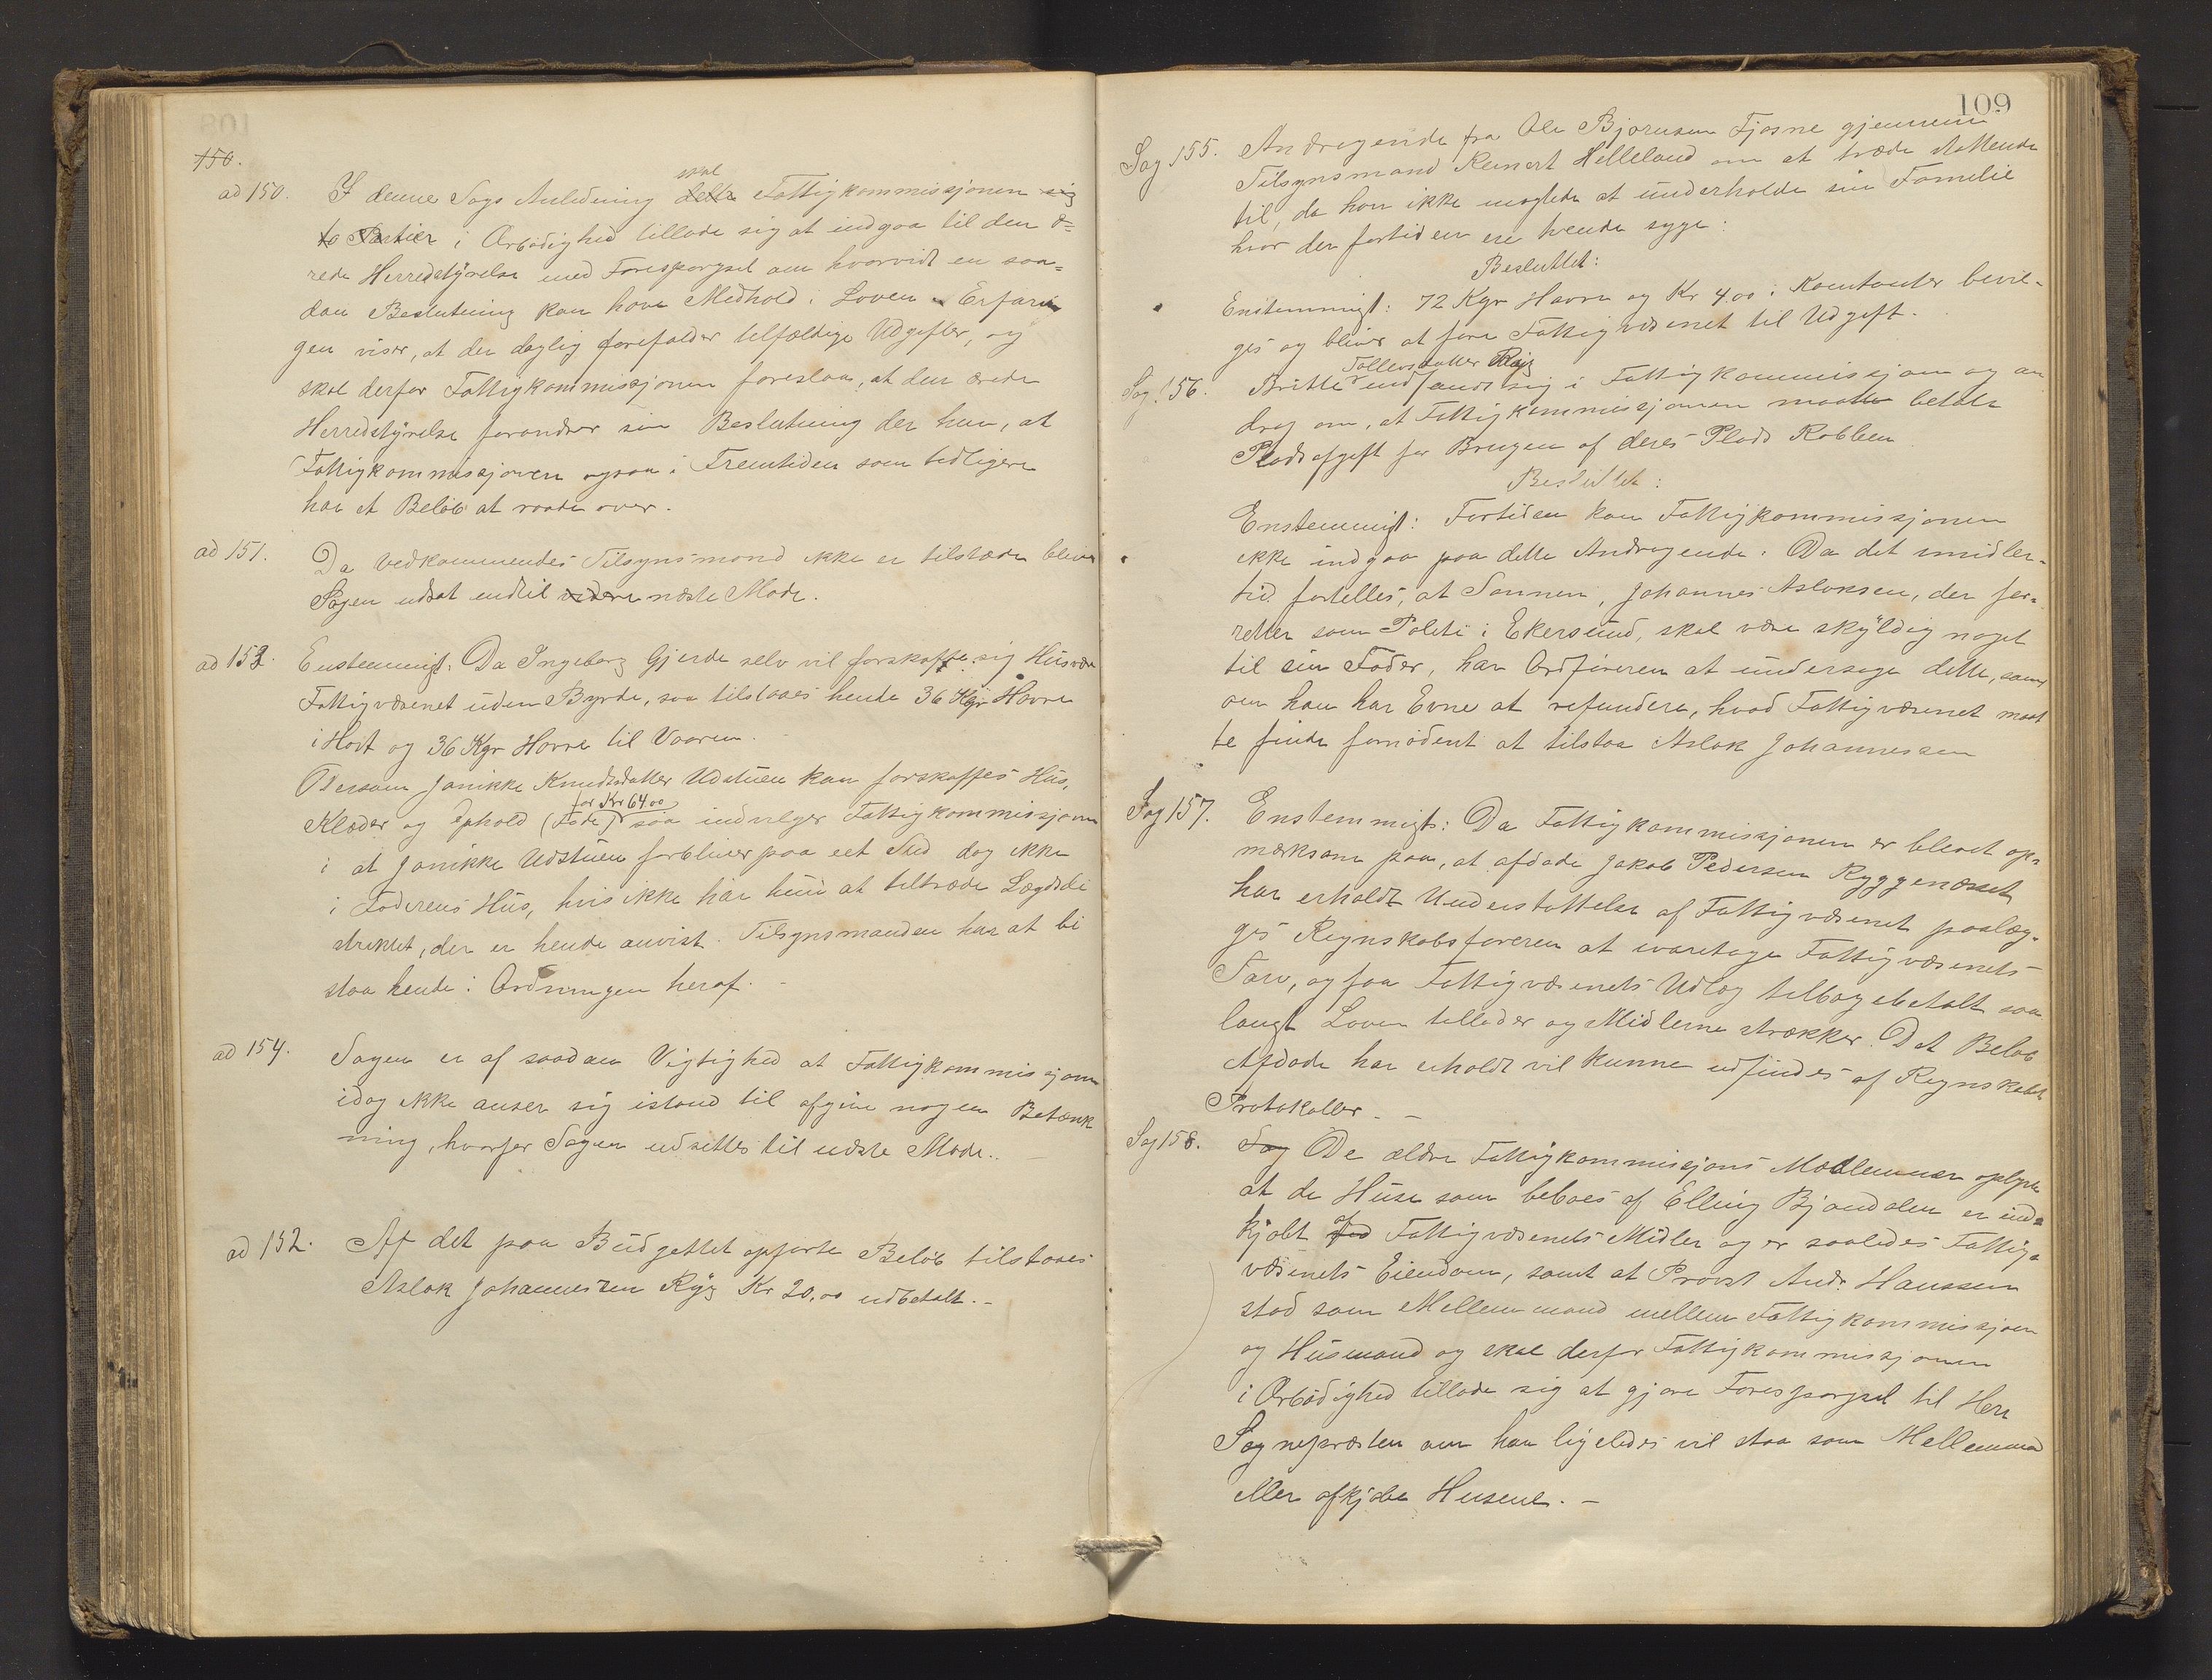 150.
ad 150. I denne Sags Anledning delte skal Fattigkommissjonen sig
to Partier i Ærbødighed tillade sig at indgaa til den æ-
rede Herredstyrelse med Forespørgsel om hvorvidt en saa-
dan Beslutning kan have Medhold i Loven. Erfarin
gen viser, at der daglig forefalder tilfældige Udgifter, og
skal derfor Fattigkommissjonen foreslaa, at den ærede
Herredstyrelse forandrer sin Beslutning der hen, at
Fattigkommissjonen ogsaa i Fremtiden som tidligere
har et Beløb at raade over.
ad 151. Da vedkommendes Tilsynsmand ikke er tilstæde bliver
Sagen udsat indtil videre næste Møde.
ad 153. Enstemmigt: Da Ingeborg Gjerde selv vil forskaffe sig Husvær
Fattigvæsenet uden Byrde, saa tilstaaes hende 36 Kgr Havre
i Høst og 36 Kgr Havre til Vaaren.
Dersom Janikke Knudsdatter Udstuen kan forskaffes Hus,
Klæder og Ophold (Føde) for Kr 64.00 saa indvilger Fattigkommissjonen
i at Janikke Udstuen forbliver paa eet Sted dog ikke
i Faderens Hus, hvis ikke har hun at tiltræde Lægdsdi
striktet, der er hende anvist. Tilsynsmanden har at bi
staa hende i Ordningen heraf. -
ad 154. Sagen er af saadan Vigtighed at Fattigkommissjonen
idag ikke anser sig istand til afgive nogen Betænk
ning, hvorfor Sagen udsættes til næste Møde. -
ad 152. Af det paa Budgettet opførte Beløb tilstaaes
Aslak Johannesen Ryg Kr 20.00 udbetalt. -
109
Sag 155. Andragende fra Ole Bjørnsen Fjøsne gjennem
Tilsynsmand Reinert Helleland om at træde støttende
til, da han ikke magtede at underholde sin Familie
hvor der fortiden ere tvende syge:
Besluttet:
Enstemmigt: 72 Kgr Havre og Kr 4.00 i Kontanter bevil-
ges og bliver at føre Fattigvæsenet til Udgift.
Sag. 156. Britte Tollevsdatter Ryg indfandt sig i Fattigkommissjonen og an
drog om, at Fattigkommissjonen maatte betale
Pladsafgift for Brugen af deres Plads Kobben
Besluttet:
Enstemmigt: Fortiden kan Fattigkommissjonen
ikke indgaa paa dette Andragende. Da det imidler-
tid fortælles, at Sønnen, Johannes Aslaksen, der for-
retter som Politi i Ekersund, skal være skyldig noget
til sin Fader, har Ordføreren at undersøge dette, samt
om han har Evne at refundere, hvad Fattigvæsenet maat
te finde fornødent at tilstaa Aslak Johannessen
Sag 157. Enstemmigt: Da Fattigkommissjonen er blevet op-
mærksom paa, at afdøde Jakob Pedersen Ryggenæsset
har erholdt Understøttelse af Fattigvæsenet paalæg-
ges Regnskabsføreren at ivaretage Fattigvæsenets
Tarv, og faa Fattigvæsenets Udlæg tilbagebetalt saa
langt Loven tillader og Midlerne strækker. Det Beløb
Afdøde har erholdt vil kunne udfindes af Regnskabs
Protokoller. -
Sag 158. Sag De ældre Fattigkommissjons Medlemmer oplyste
at de Huse som beboes af Elling Bjaudalen er ind-
kjøbt for af Fattigvæsenets Midler og er saaledes Fattig-
væsenets Eiendom, samt at Provst Andr. Hanssen
stod som Mellemmand mellem Fattigkommissjonen
og Husmand og skal derfor Fattigkommissjonen
i Ærbødighed tillade sig at gjøre Forespørgsel til Herr
Sognepræsten om han ligeledes vil staa som Mellemmand
eller afkjøbe Husene. -